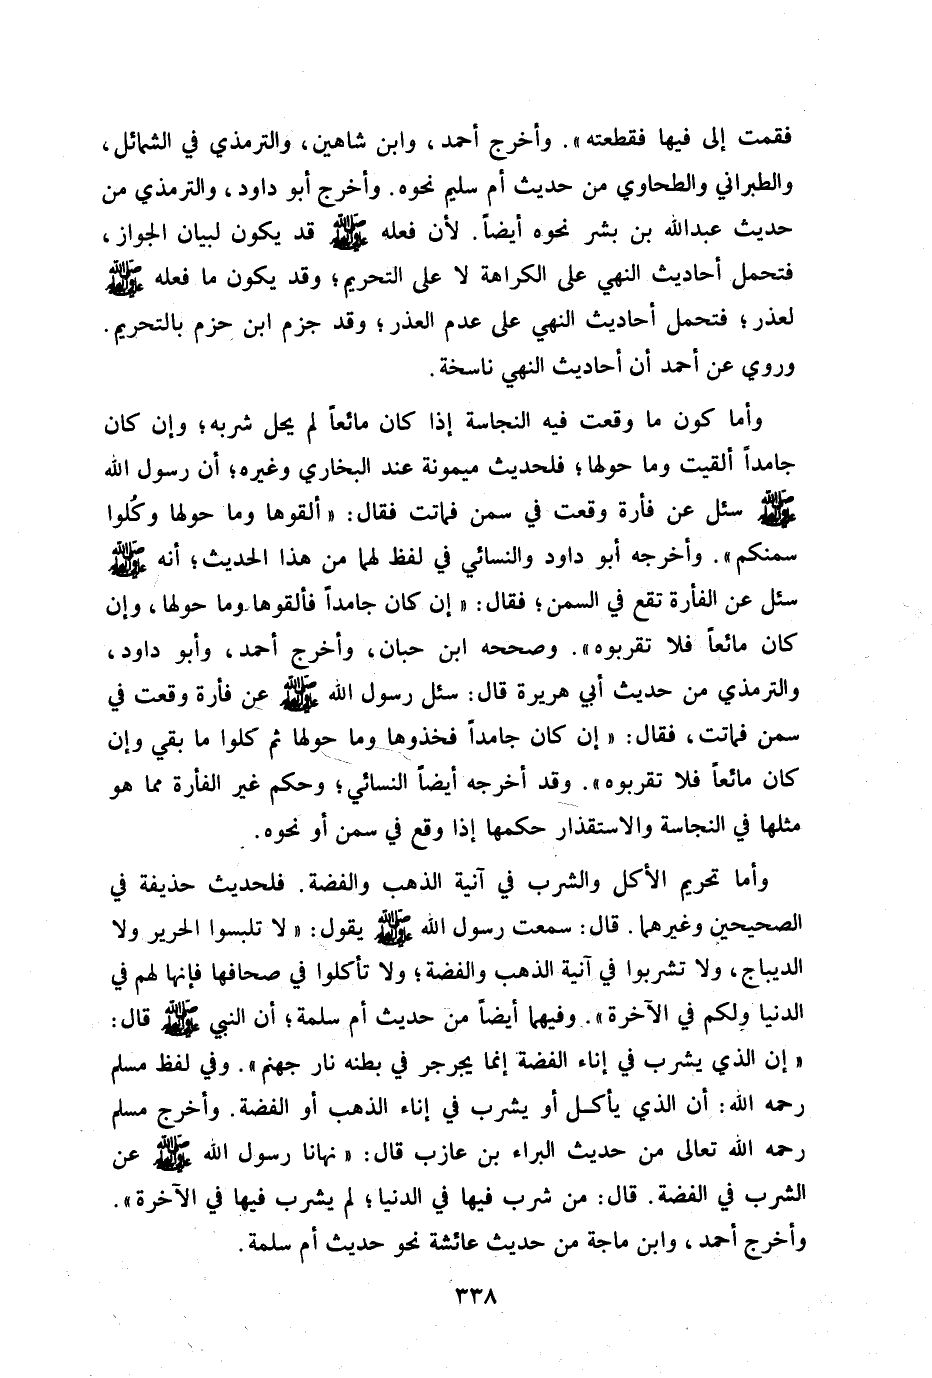 فقمت إلى فيها فقطعته». وأخرج أحمد، وابن شاهين، والترمذي في الشمائل،
والطبراني والطحاوي من حديث أم سليم نحوه. وأخرج أبو داود، والترمذي من
حديث عبدالله بن بشر نحوه أيضاً. لأن فعله ﷺ قد يكون لبيان الجواز،
فتحمل أحاديث النهي على الكراهة لا على التحريم؛ وقد يكون ما فعله ﷺ
لعذر؛ فتحمل أحاديث النهي على عدم العذر؛ وقد جزم ابن حزم بالتحريم.
وروي عن أحمد أن أحاديث النهي ناسخة.
وأما كون ما وقعت فيه النجاسة إذا كان مائعاً لم يحل شربه؛ وإن كان
جامداً ألقيت وما حولها؛ فلحديث ميمونة عند البخاري وغيره؛ أن رسول الله
ﷺ سئل عن فأرة وقعت في سمن فماتت فقال: «ألقوها وما حولها وكُلوا
سمنكم». وأخرجه أبو داود والنسائي في لفظ لهما من هذا الحديث؛ أنه ﷺ
سئل عن الفأرة تقع في السمن؛ فقال: «إن كان جامداً فألقوها وما حولها، وإن
كان مائعاً فلا تقربوه». وصححه ابن حبان، وأخرج أحمد، وأبو داود،
والترمذي من حديث أبي هريرة قال: سئل رسول الله ﷺ عن فأرة وقعت في
سمن فماتت، فقال: «إن كان جامداً فخذوها وما حولها ثم كلوا ما بقي وإن
كان مائعاً فلا تقربوه». وقد أخرجه أيضاً النسائي؛ وحكم غير الفأرة مما هو
مثلها في النجاسة والاستقذار حكمها إذا وقع في سمن أو نحوه.
وأما تحريم الأكل والشرب في آنية الذهب والفضة. فلحديث حذيفة في
الصحيحين وغيرهما. قال: سمعت رسول الله ﷺ يقول: «لا تلبسوا الحرير ولا
الديباج، ولا تشربوا في آنية الذهب والفضة؛ ولا تأكلوا في صحافها فإنها لهم في
الدنيا ولكم في الآخرة». وفيهما أيضاً من حديث أم سلمة؛ أن النبي ﷺ قال:
«إن الذي يشرب في إناء الفضة إنما يجرجر في بطنه نار جهنم». وفي لفظ مسلم
رحمه الله: أن الذي يأكل أو يشرب في إناء الذهب أو الفضة. وأخرج مسلم
رحمه الله تعالى من حديث البراء بن عازب قال: «نهانا رسول الله ﷺ عن
الشرب في الفضة. قال: من شرب فيها في الدنيا؛ لم يشرب فيها في الآخرة».
وأخرج أحمد، وابن ماجة من حديث عائشة نحو حديث أم سلمة.
٣٣٨